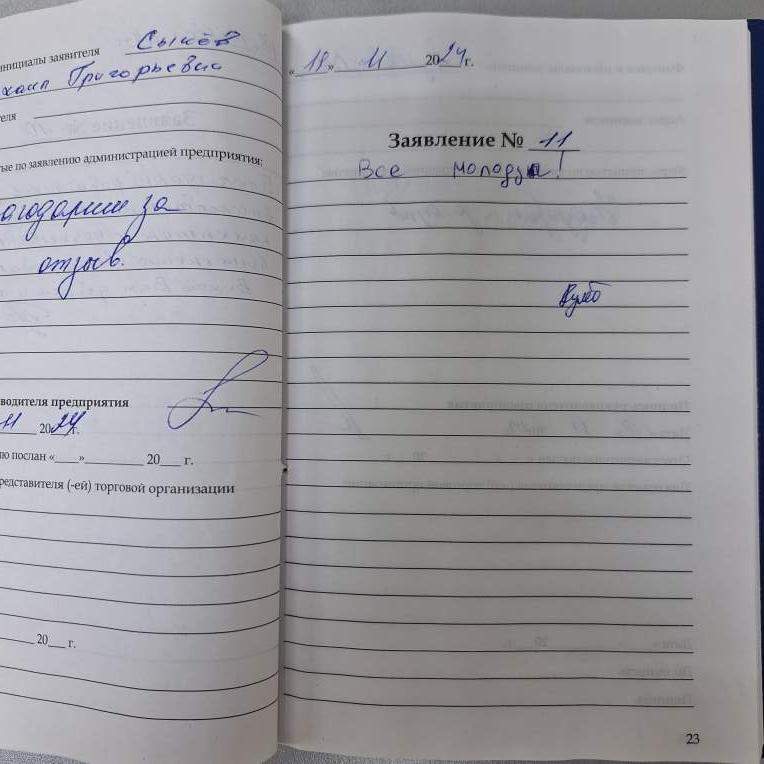 инициалы заявителя Сычёв
хаил Григорьевич
теля
ые по заявлению администрацией предприятия:
агодарим за
отзыв.
водителя предприятия
11 2024г.
ю послан «___»________ 20___ г.
редставителя (-ей) торговой организации
20___ г.
«18» 11 2024г.
Заявление № 11
Все молодцы!
23